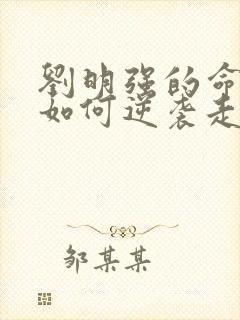 劉明强的命
如何逆袭走
邹某某